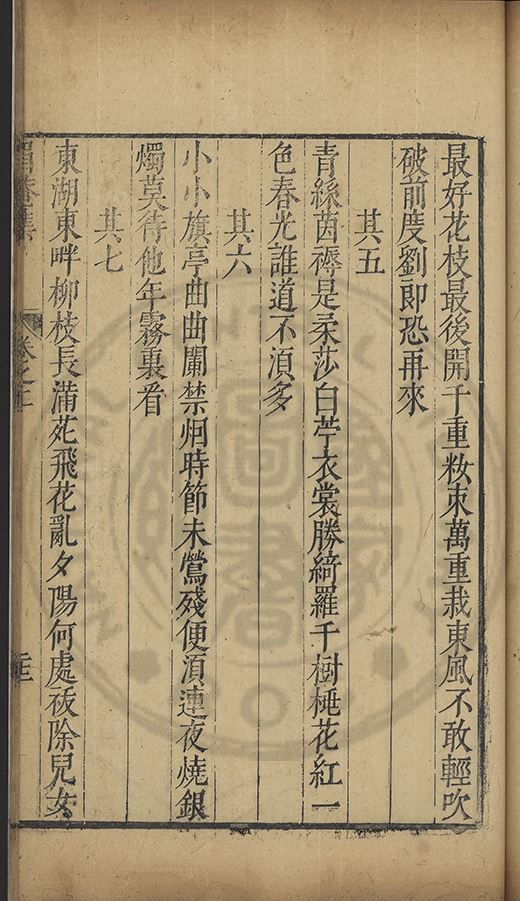 最好花枝最後開千重籹束萬重栽東風不敢輕吹
破前度劉郎恐再來
其五
青絲茵褥是枲莎白苧衣裳勝綺羅千樹桃花紅一
色春光誰道不湏多
其六
小小旗亭曲曲闌禁烟時節未鶯殘便湏連夜燒銀
燭莫待他年霧裏看
其七
東湖東畔柳枝長滿苑飛花亂夕陽何處祓除兒女
卷之三